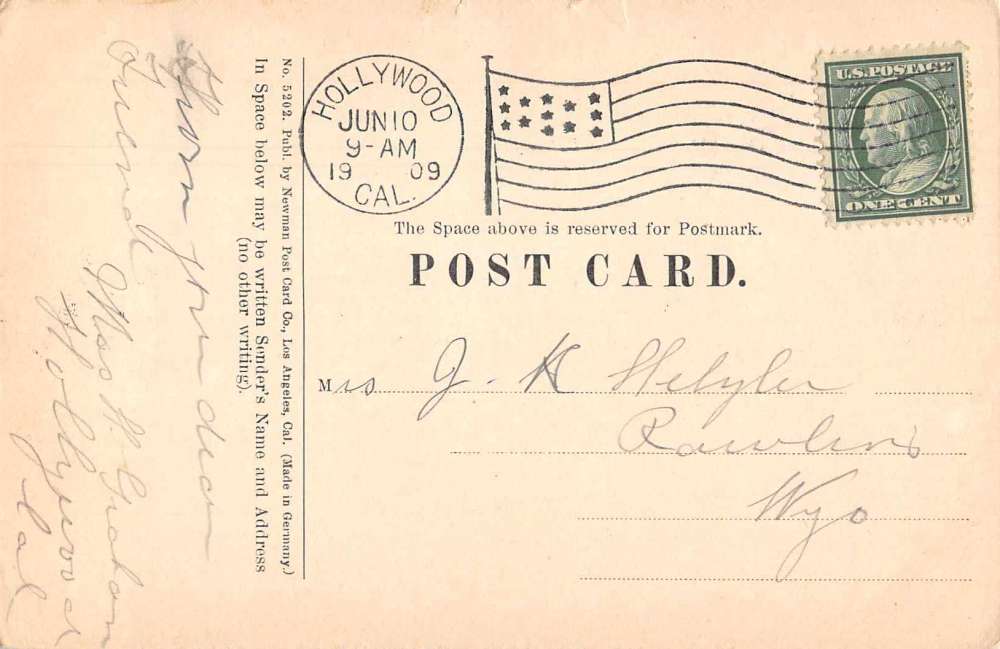 HOLLYWOOD
JUN 10
9-AM
1909
CAL.
U.S. POSTAGE
ONE CENT
The Space above is reserved for Postmark.
POST CARD.
Mrs J. H.
Rawlins
Wyo
No. 5202. Publ. by Newman Post Card Co., Los Angeles, Cal. (Made in Germany.)
In Space below may be written Sender's Name and Address
(no other writing).
From your dear
Friend
Mrs H. Graham
Hollywood
Cal